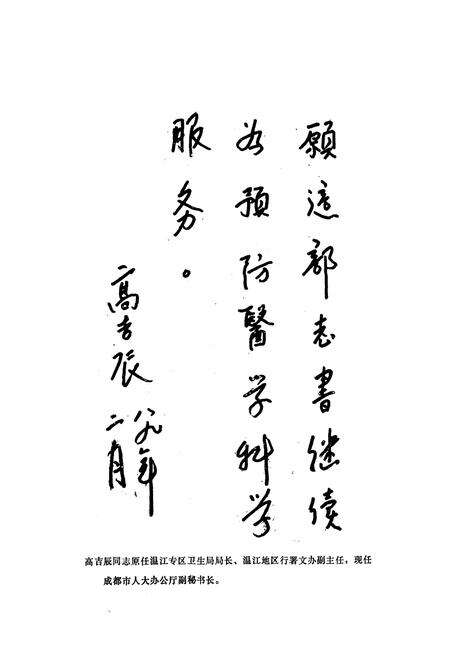 願這部志書继续
为預防醫学科学
服务。
高吉辰
八九年
二月
高吉辰同志原任温江专区卫生局局长、温江地区行署文办副主任，现任
成都市人大办公厅副秘书长。